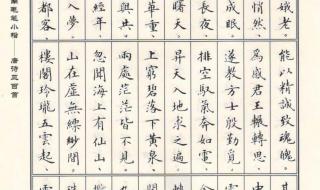 娥老。能以精誠致魂魄。
悄然、為感君王輾轉思、
成眠、遂教方士殷勤覓。
長夜、排空馭氣奔如電、
曙天。升天入地求之遍。
華重、上窮碧落下黃泉、
與共。兩處茫茫皆不見。
經年、忽聞海上有仙山、
入夢。山在虛無縹緲間。
都客、樓閣玲瓏五雲起、
毛筆小楷 唐詩三百首